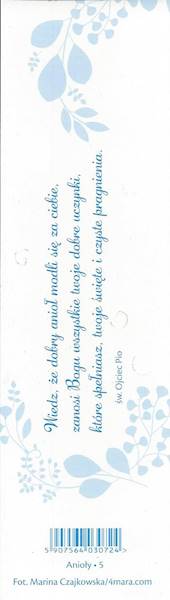 Wiedz, że dobry anioł modli się za ciebie,
zanosi Bogu wszystkie twoje dobre uczynki,
które spełniasz, twoje święte i czyste pragnienia.
św. Ojciec Pio
5 907564 030724 >
Anioły • 5
Fot. Marina Czajkowska/4mara.com